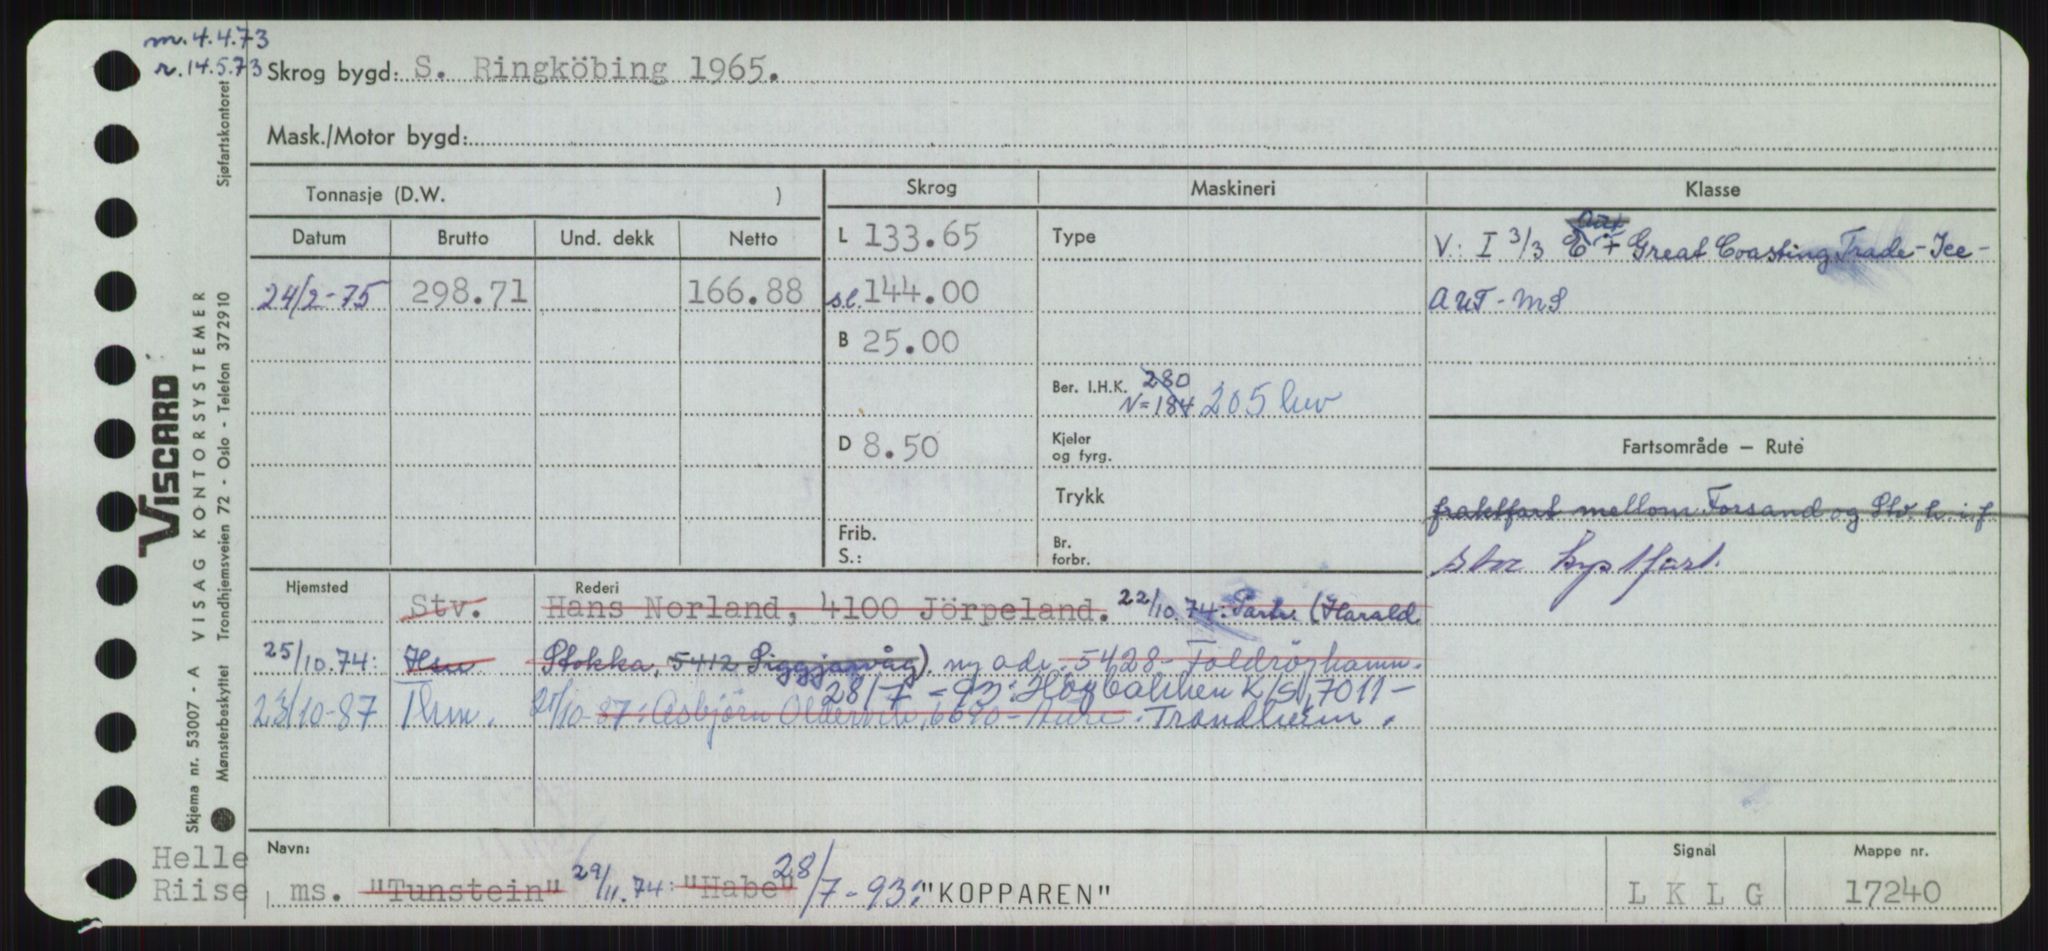 m. 4.4.73
r. 14.5.73
Skrog bygd: S. Ringköbing 1965.
Mask./Motor bygd:
Tonnasje (D.W. )
Skrog
Maskineri
Klasse
Datum Brutto Und. dekk Netto
24/2-75 298.71 166.88
L 133.65
s.l. 144.00
B 25.00
D 8.50
Frib.
S.:
Type
Ber. I.H.K. 280
N=184 205 hw
Kjeler
og fyrg.
Trykk
Br.
forbr.
V: I 3/3 E + Great Coasting Trade - Ice -
AUT - MS
Fartsområde — Rute
fraktfart mellom Forsand og Stv. h.i.f
stor kystfart.
Hjemsted
Rederi
Stv. Hans Norland, 4100 Jörpeland. 22/10.74: Partr. (Harald
25/10.74: Hsu Stokka, 5412 Siggjarvåg). ny adr. 5428 - Foldröyhamn.
28/7-93: K/S, 7011-
23/10-87 Thm. 21/10-87: Asbjörn 6690-Aure. Trondheim.
Navn:
ms. "Tunstein" 29/11.74: "Habe" 28/7-93: "KOPPAREN"
Signal
L K L G
Mappe nr.
17240
Helle
Riise
Sjøfartskontoret
VISCARD
VISAG KONTORSYSTEMER
Trondhjemsveien 72 - Oslo - Telefon 372910
Skjema nr. 53007 - A
Mønsterbeskyttet